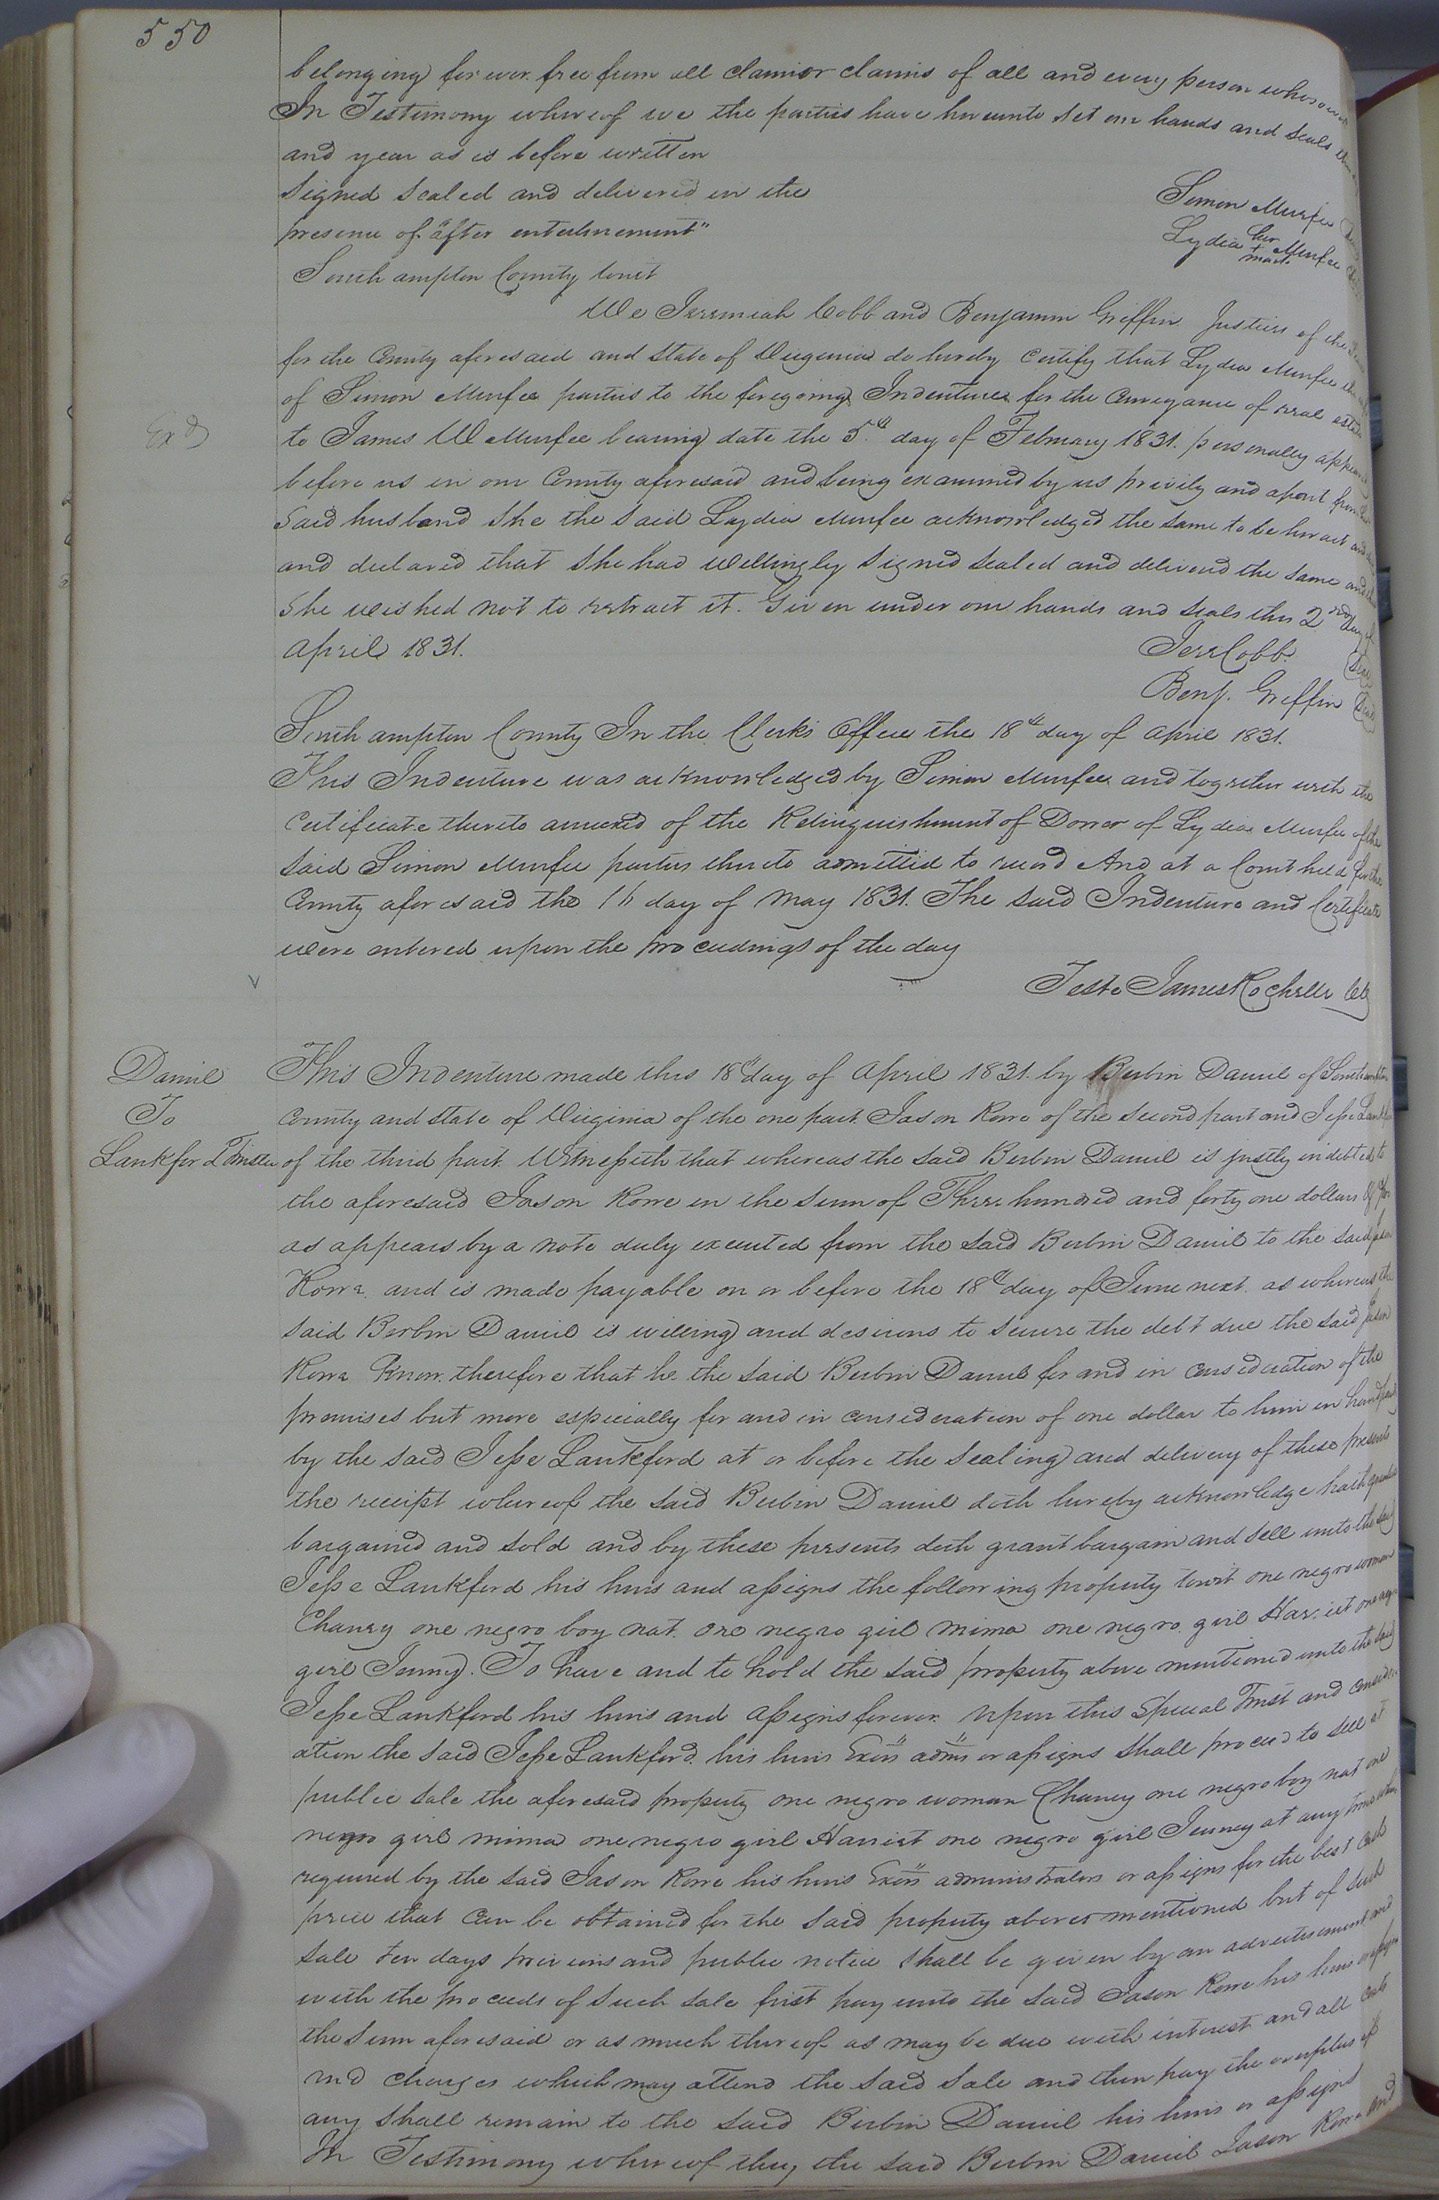 550
belonging forever free from all claim or claims of all and every person whosoever
In Testimony whereof we the parties have hereunto set our hands and seals the
and year as is before written
Signed Sealed and delivered in the
presence of "after enterlinement"
Simon Murfee
Lydia her + mark Murfee
Southampton County towit
We Jeremiah Cobb and Benjamin Griffin Justices of the
for the County aforesaid and State of Virginia do hereby Certify that Lydia Murfee the wife
of Simon Murfee parties to the foregoing Indenture for the Conveyance of real estate
Exd
to James W Murfee bearing date the 5th day of February 1831. personally appeared
before us in our County aforesaid and being examined by us privily and apart from her
Said husband She the said Lydia Murfee acknowledged the same to be her act and
and declared that She had Willingly Signed Sealed and delivered the same and that
She wished not to retract it. Given under our hands and seals this 2nd day of
April 1831.
Jere Cobb Seal
Benj. Griffin Seal
Southampton County In the Clerks Office the 18th day of April 1831.
This Indenture was acknowledged by Simon Murfee and together with the
Certificate thereto annexed of the Relinquishment of Dower of Lydia Murfee of the
Said Simon Murfee parties thereto admitted to record And at a Court held for the
County aforesaid the 16 day of May 1831. The said Indenture and Certificate
were entered upon the proceedings of the day
Teste James Rochelle Clk
Daniel
To
Lankford Trustee
This Indenture made this 18th day of April 1831. by Burbin Daniel of Southampton
County and State of Virginia of the one part Jason Rowe of the Second part and Jesse Lankford
of the third part. Witnesseth that whereas the said Burbin Daniel is justly indebted to
the aforesaid Jason Rowe in the Sum of Three hundred and forty one dollars
as appears by a note duly executed from the said Burbin Daniel to the said Jason
Rowe. and is made payable on or before the 18th day of June next. as whereas the
Said Burbin Daniel is willing and desirous to secure the debt due the said Jason
Rowe Know therefore that he the said Burbin Daniel for and in consideration of the
premises but more especially for and in consideration of one dollar to him in hand paid
by the said Jesse Lankford at or before the Sealing and delivery of these presents
the receipt whereof the said Burbin Daniel doth hereby acknowledge hath granted
bargained and sold and by these presents doth grant bargain and sell unto the said
Jesse Lankford his heirs and assigns the following property towit one negro woman
Chaney one negro boy nat one negro girl mima one negro girl Harriet one negro
girl Jenny. To have and to hold the said property above mentioned unto the said
Jesse Lankford his heirs and assigns forever. Upon this Special Trust and consider-
ation the said Jesse Lankford. his heirs Exors adms or assigns shall proceed to sell at
public sale the aforesaid property one negro woman Chaney one negro boy nat one
negro girl mima one negro girl Harriet one negro girl Jenney at any time when
required by the said Jason Rowe his heirs Exors administrators or assigns for the best cash
price that can be obtained for the said property above mentioned but of such
Sale ten days previous and public notice shall be given by an advertisement and
with the proceeds of such sale first pay unto the said Jason Rowe his heirs or assigns
the sum aforesaid or as much thereof as may be due with interest and all costs
and charges which may attend the said sale and then pay the overplus if
any shall remain to the said Burbin Daniel his heirs or assigns
In Testimony whereof they the said Burbin Daniel Jason Rowe and